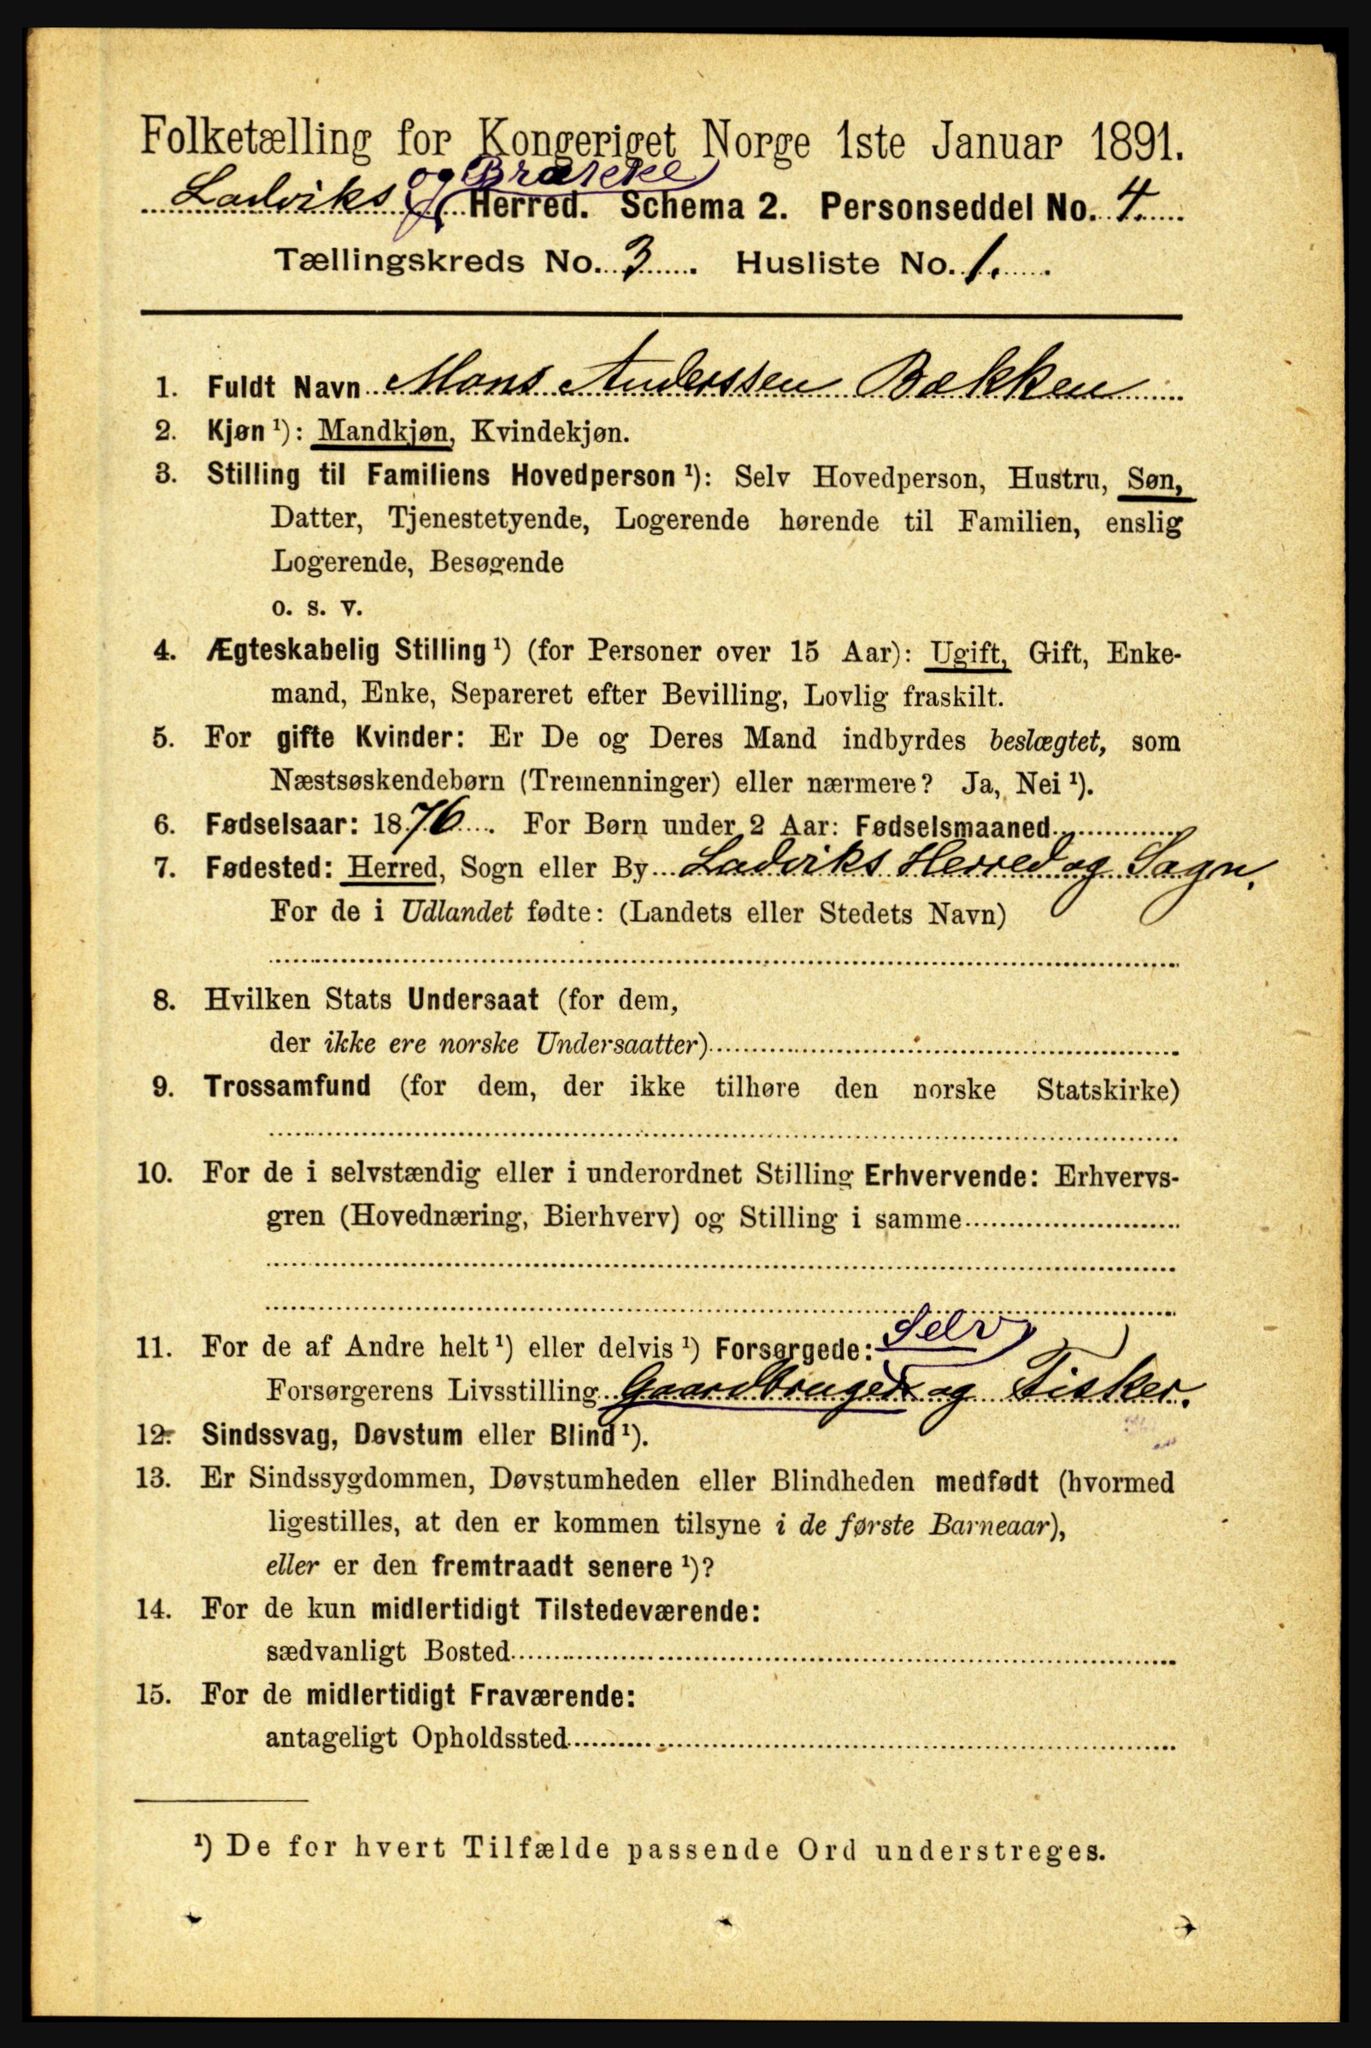 Folketælling for Kongeriget Norge 1ste Januar 1891.
Ladviks og Brække Herred. Schema 2. Personseddel No. 4.
Tællingskreds No. 3. Husliste No. 1.
1. Fuldt Navn Mons Anderssen Bækken
2. Kjøn ¹): Mandkjøn, Kvindekjøn.
3. Stilling til Familiens Hovedperson ¹): Selv Hovedperson, Hustru, Søn,
Datter, Tjenestetyende, Logerende hørende til Familien, enslig
Logerende, Besøgende
o. s. v.
4. Ægteskabelig Stilling ¹) (for Personer over 15 Aar): Ugift, Gift, Enke-
mand, Enke, Separeret efter Bevilling, Lovlig fraskilt.
5. For gifte Kvinder: Er De og Deres Mand indbyrdes beslægtet, som
Næstsøskendebørn (Tremenninger) eller nærmere? Ja, Nei ¹).
6. Fødselsaar: 1876. For Børn under 2 Aar: Fødselsmaaned
7. Fødested: Herred, Sogn eller By Ladviks Herred og Sogn.
For de i Udlandet fødte: (Landets eller Stedets Navn)
8. Hvilken Stats Undersaat (for dem,
der ikke ere norske Undersaatter)
9. Trossamfund (for dem, der ikke tilhøre den norske Statskirke)
10. For de i selvstændig eller i underordnet Stilling Erhvervende: Erhvervs-
gren (Hovednæring, Bierhverv) og Stilling i samme
Selv
11. For de af Andre helt ¹) eller delvis ¹) Forsørgede:
Forsørgerens Livsstilling Gaardbruger og Fisker.
12. Sindssvag, Døvstum eller Blind ¹).
13. Er Sindssygdommen, Døvstumheden eller Blindheden medfødt (hvormed
ligestilles, at den er kommen tilsyne i de første Barneaar),
eller er den fremtraadt senere ¹)?
14. For de kun midlertidigt Tilstedeværende:
sædvanligt Bosted
15. For de midlertidigt Fraværende:
antageligt Opholdssted
¹) De for hvert Tilfælde passende Ord understreges.